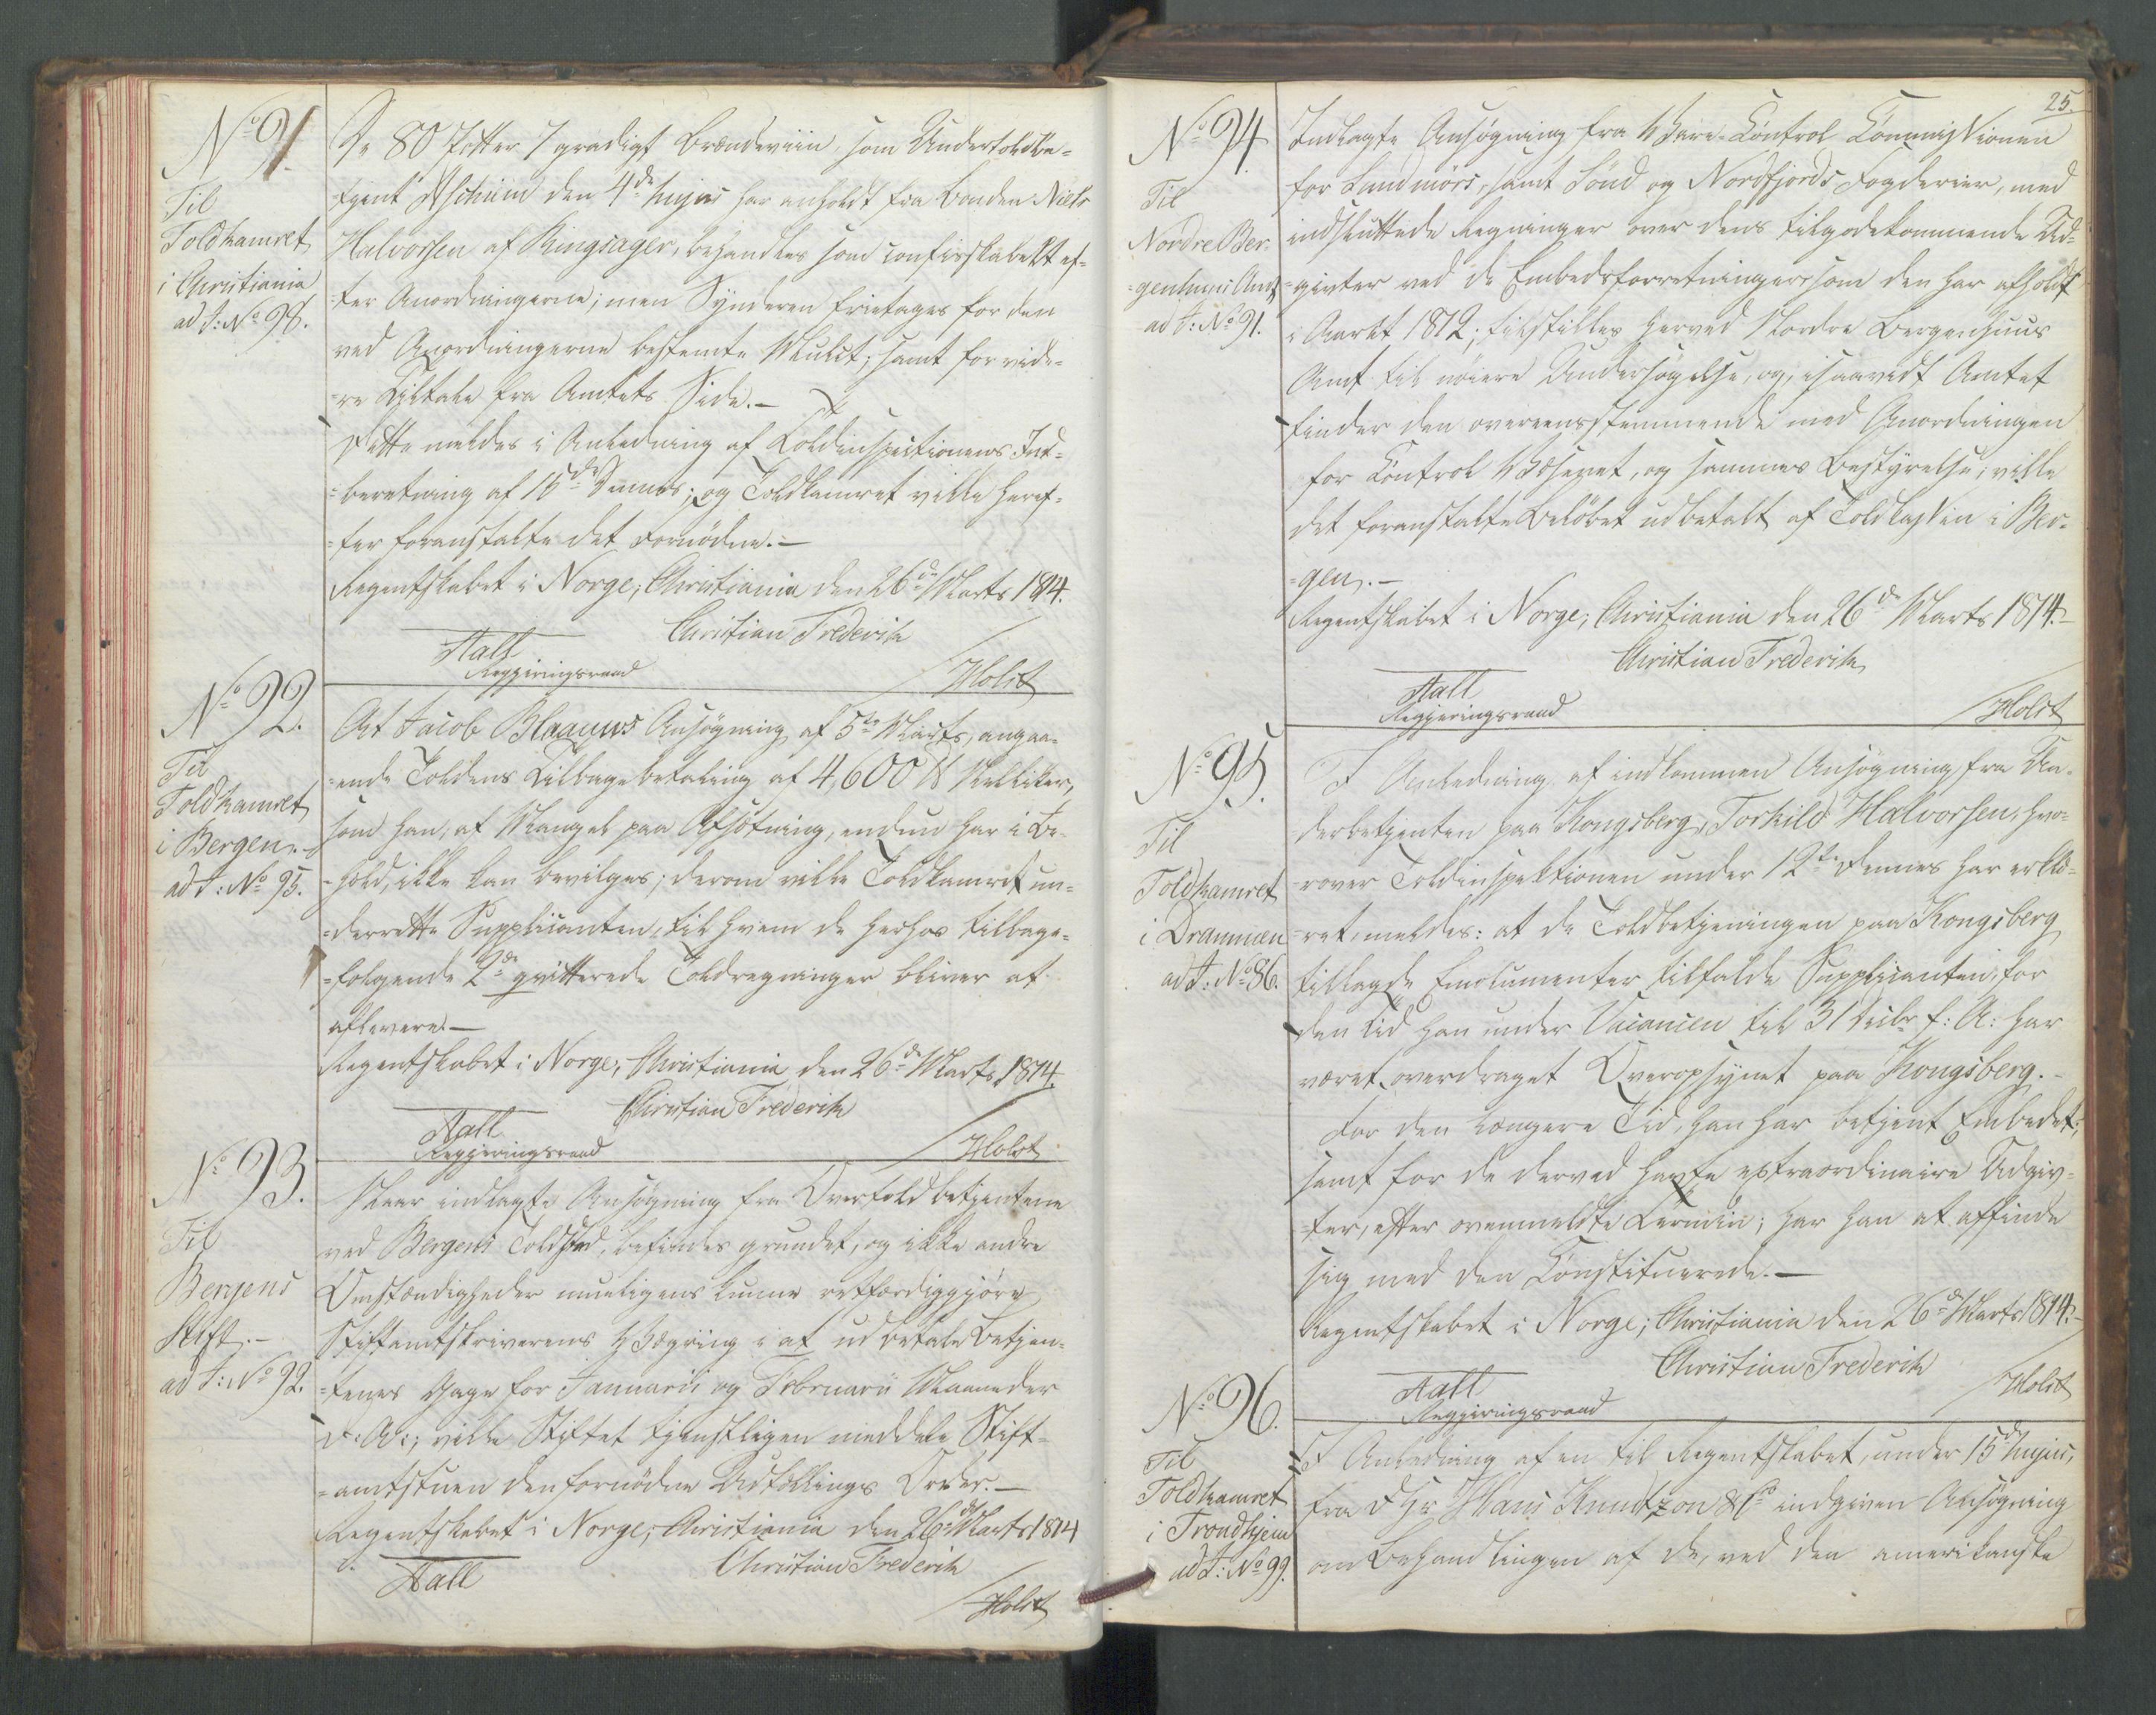 No 91.
Til
Toldkamret
i Christiania
ad J: No 98.
De 80 Potter 7 gradigt Brændeviin, som Undertoldbe-
tjent Aschim den 4de hujus har anholdt fra Bonden Niels
Halvorsen af Ringsager, behandles som confisskabelt ef-
ter Anordningerne; men Synderen frietages for den
ved Anordningerne bestemte Mulct, samt for vide-
re Tiltale fra Amtets Side.-
Dette meldes i Anledning af Toldinspectionens Ind-
beretning af 15de Dennes; og Toldkamret ville heref-
ter foranstalte det Fornødne.-
Regentskabet i Norge; Christiania den 26de Marts 1814.
Christian Frederik
Aall
Regjeringsraad
/Holst
No 92.
Til
Toldkamret
i Bergen.-
ad J: No 95.
At Jacob Blaauws Ansøgning af 5te Marts, angaa-
ende Toldens Tilbagebetaling af 4,600 lb Nelliker,
som han, af Mangel paa Afsætning, endnu har i Be-
hold, ikke kan bevilges; derom ville Toldkamret un-
derrette Supplicanten, til hvem de herhos tilbage-
følgende 2de qvitterede Toldregninger bliver at
aflevere.-
Regentskabet i Norge; Christiania den 26de Marts 1814.
Christian Frederik
Aall
Regjeringsraad
/Holst
No 93.
Til
Bergens
Stift.-
ad J: No 92.
Naar indlagte Ansøgning fra Overtoldbetjentene
ved Bergens Toldsted, befindes grundet, og ikke andre
Omstændigheder mueligens kunne retfærdiggjøre
Stiftamtskriverens Vægring i at udbetale Betjen-
tenes Gage for Januarii og Februarii Maaneder
d: A:, ville Stiftet tjenstligen meddele Stift-
amtstuen den fornødne Udtællings Ordre.-
Regentskabet i Norge; Christiania den 26de Marts 1814
Christian Frederik
Aall
/Holst
25.
No 94.
Til
Nordre Ber-
genhuus Amt
ad J: No 91.
Indlagte Ansøgning fra Vare-Control Commissionen
for Sundmørs, samt Sønd og Nordfjords Fogderier, med
indsluttede Regninger over dens tilgodekommende Ud-
givter ved de Embedsforretninger som den har afholdt
i Aaret 1812; tilstilles herved Nordre Bergenhuus
Amt til nøiere Undersøgelse, og, isaavidt Amtet
finder den overeensstemmende med Anordningen
for Control Væsenet, og sammes Bestyrelse, ville
det foranstalte Beløbet udbetalt af Toldkassen i Ber-
gen.-
Regentskabet i Norge; Christiania den 26de Marts 1814.-
Christian Frederik
Aall
Regjeringsraad
/Holst
No 95.
Til
Toldkamret
i Drammen
ad J: No 86.
I Anledning af indkommen Ansøgning fra Un-
derbetjenten paa Kongsberg, Torkild Halvorsen, hvo-
rover Toldinspektionen under 12te Dennes har erklæ-
ret, meldes: at de Toldbetjeningen paa Kongsberg
tillagde Emolumenter tilfalde Supplicanten, for
den Tid han under Vacancen til 31 Decbr f: A: har
været overdraget Overopsynet paa Kongsberg.-
For den længere Tid, han har betjent Embedet,
samt for de derved havte extraordinaire Udgiv-
ter, efter ovenmeldte Termin; har han at affinde
sig med den Constituerede.-
Regentskabet i Norge; Christiania den 26de Marts 1814.-
Christian Frederik
Aall
Regjeringsraad
/Holst
No 96.
Til
Toldkamret
i Trondhjem
ad J: No 99.
I Anledning af en til Regentskabet, under 15de hujus,
fra DHr Hans Knudtzon & Co indgiven Ansøgning
om Behandlingen af de, ved den amerikanske